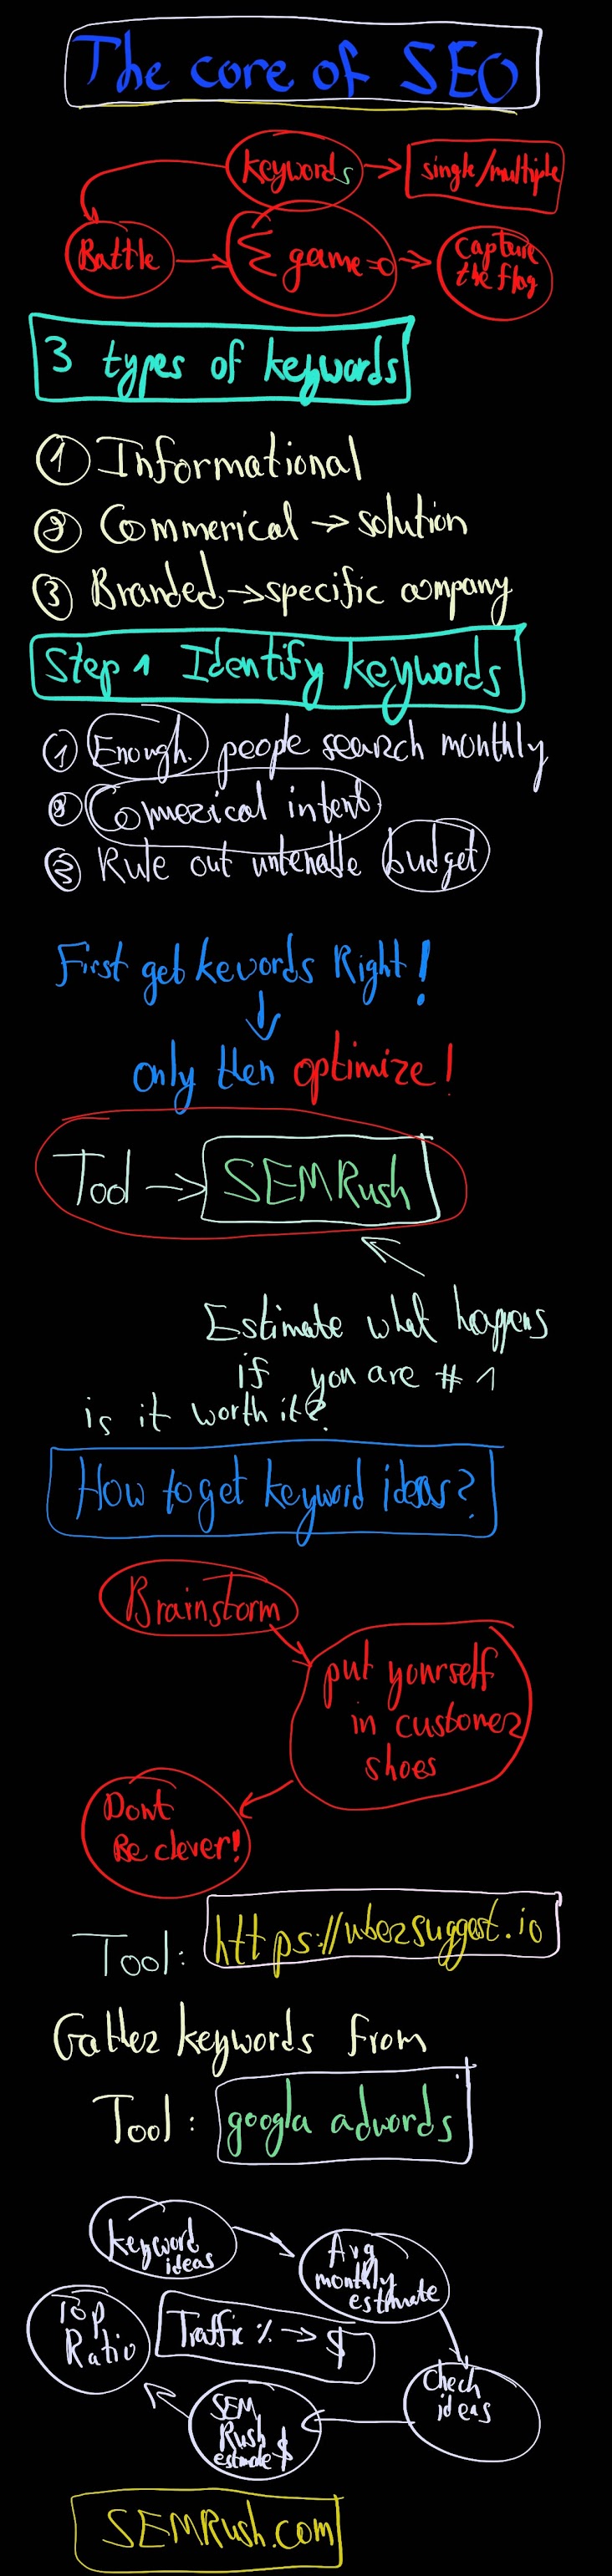 The core of SEO
keywords → single/multiple
Battle → Σ game=0 → Capture
the flag
3 types of keywords
① Informational
② Commerical → solution
③ Branded → specific company
Step 1 Identify keywords
① Enough people search monthly
② Commerical intent
③ Rule out untenable budget
First get kewords Right!
only then optimize!
Tool → SEMRush
Estimate what happens
if you are # 1
is it worth it?
How to get keyword ideas?
Brainstorm
put yourself
in customer
shoes
Dont
Be clever!
Tool: https://ubersuggest.io
Gather keywords from
Tool: googla adwords
keyword
ideas
Avg
monthly
estimate
Top
Ratio
Traffic % → $
Chech
ideas
SEM
Rush
estimate $
SEMRush.com